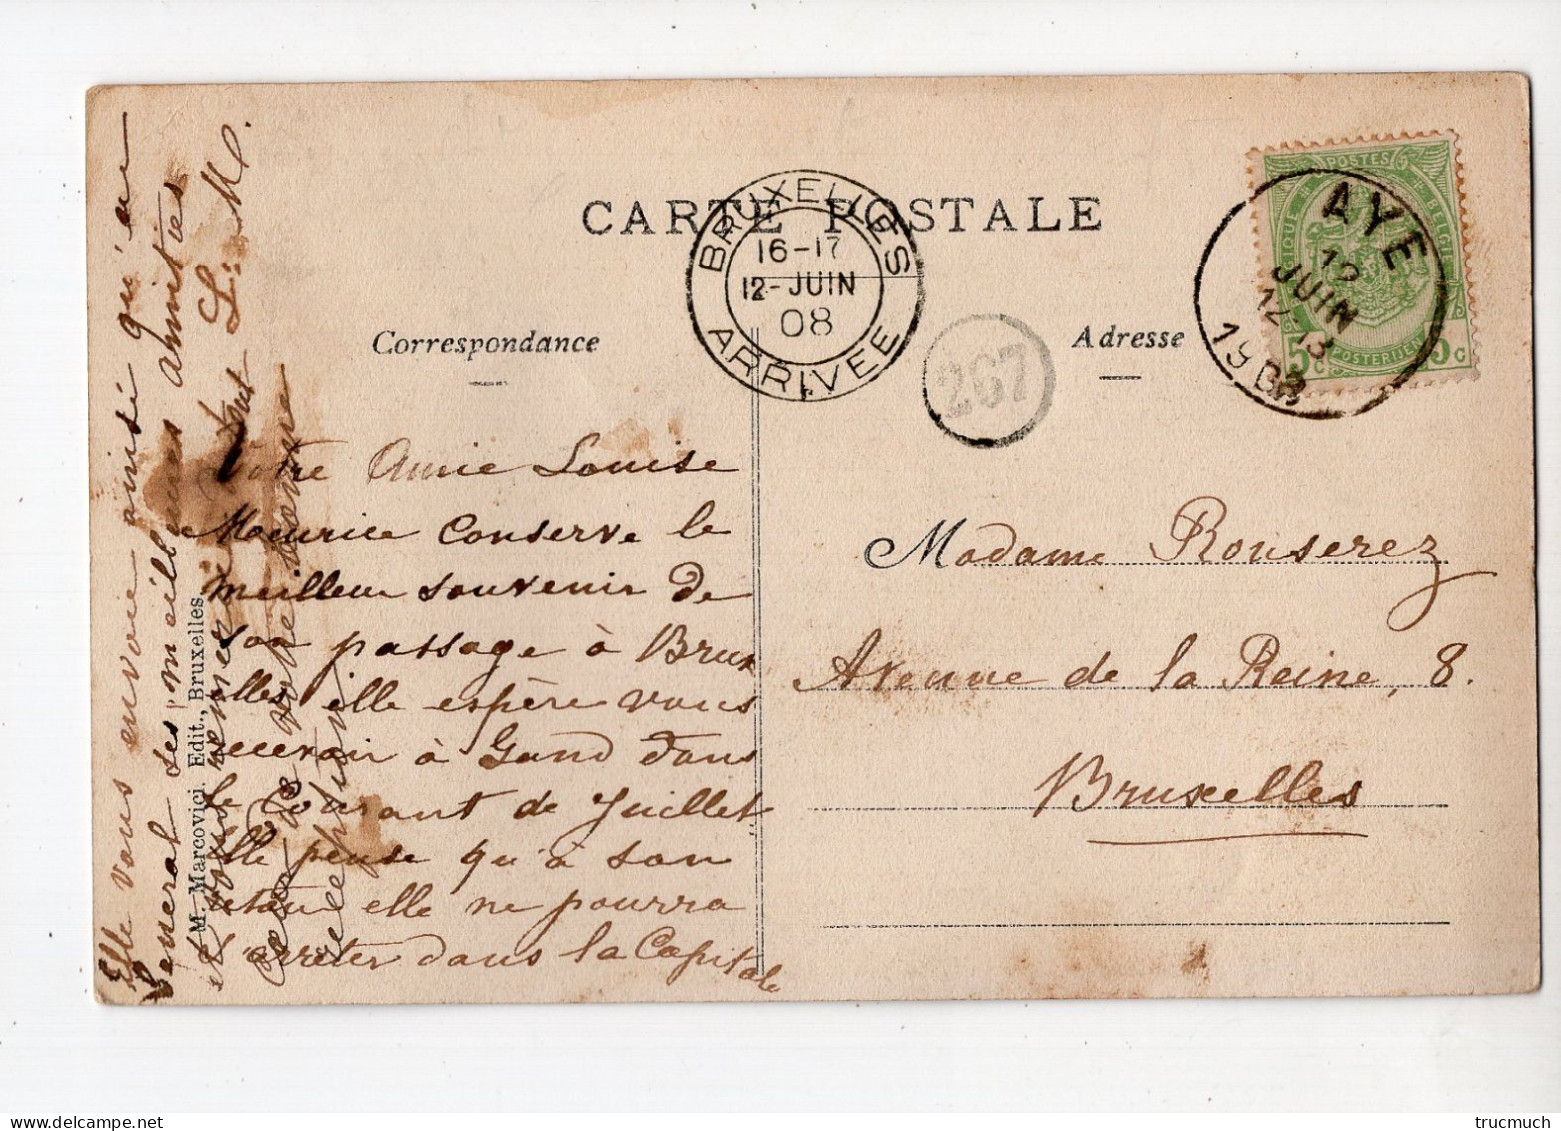 CARTE POSTALE
BRUXELLES
16-17
12-JUIN
08
ARRIVEE
267
AYE
12
JUIN
12-13
1908
POSTES
BELGIQUE
BELGIE
5c POSTERIJEN 5c
Correspondance
Adresse
Votre Amie Louise
Maurice Conserve le
meilleur souvenir de
son passage à Brux
elles, elle espère vous
recevoir à Gand dans
le Courant de Juillet
Elle pense qu'à son
retour elle ne pourra
s'arrêter dans la Capitale
Elle vous envoie ainsi qu'au
ses meilleures amitiés
L. M.
Madame Rouserez
Avenue de la Reine, 8.
Bruxelles
M. Marcovici, Edit., Bruxelles.
trucmuch